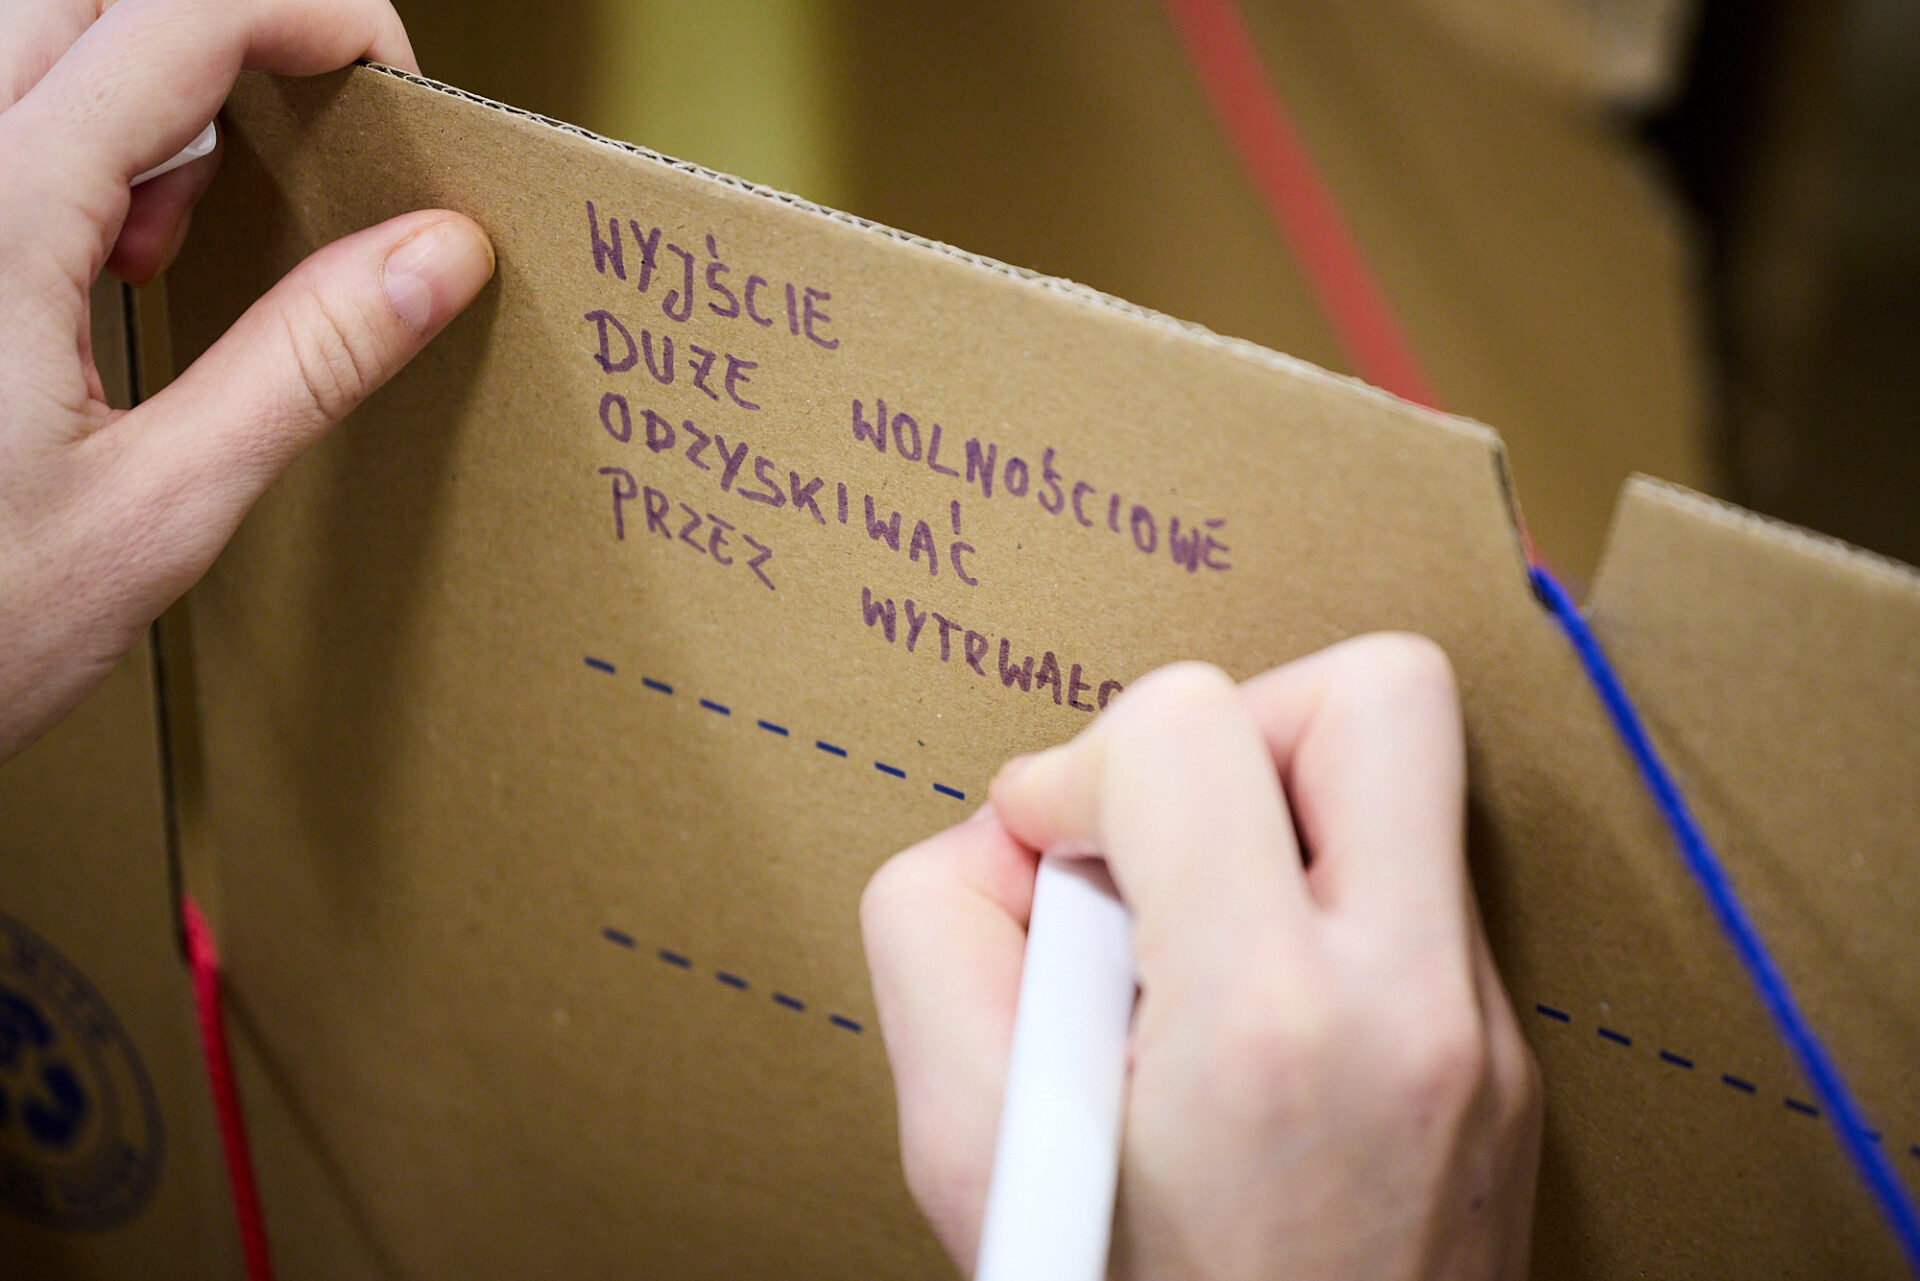 WYJŚCIE
DUŻE WOLNOŚCIOWE
ODZYSKIWAĆ
PRZEZ